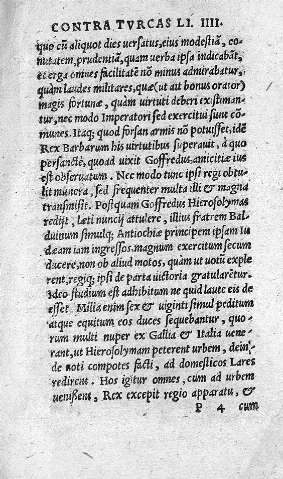 CONTRA TVRCAS LI. IIII.
quo cū aliquot dies versatus, eius modestiā, co-
mitatem, prudentiā, quam verba ipsa indicabāt,
et erga omnes facilitatē nō minus admirabatur,
quam laudes militares, quæ (ut ait bonus orator)
magis fortunæ, quam uirtuti deberi existiman-
tur, nec modo Imperatori sed exercitui sunt cō-
munes. Itaq; quod forsan armis nō potuisset, idē
Rex Barbarum his uirtutibus superauit, a quo
persanctè, quoad uixit Goffredus, amicitiæ ius
est obseruatum. Nec modo tunc ipsi regi obtu-
lit munera, sed frequenter multa illi & magna
transmisit. Postquam Goffredus Hierosolymas
redijt, læti nuncij attulere, illius fratrem Bal-
duinum simulq; Antiochiæ principem ipsam Iu
dæam iam ingressos, magnum exercitum secum
ducere, non ob aliud motos, quam ut uotū exple
rent, regiq; ipsi de parta uictoria gratularētur.
Ideo studium est adhibitum ne quid laute eis de
esset. Milia enim sex & uiginti simul peditum
atque equitum eos duces sequebantur, quo-
rum multi nuper ex Gallia & Italia uene-
rant, ut Hierosolymam peterent urbem, dein-
de uoti compotes facti, ad domesticos Lares
redirent. Hos igitur omnes, cum ad urbem
uenissent, Rex excepit regio apparatu, &
P 4 cum